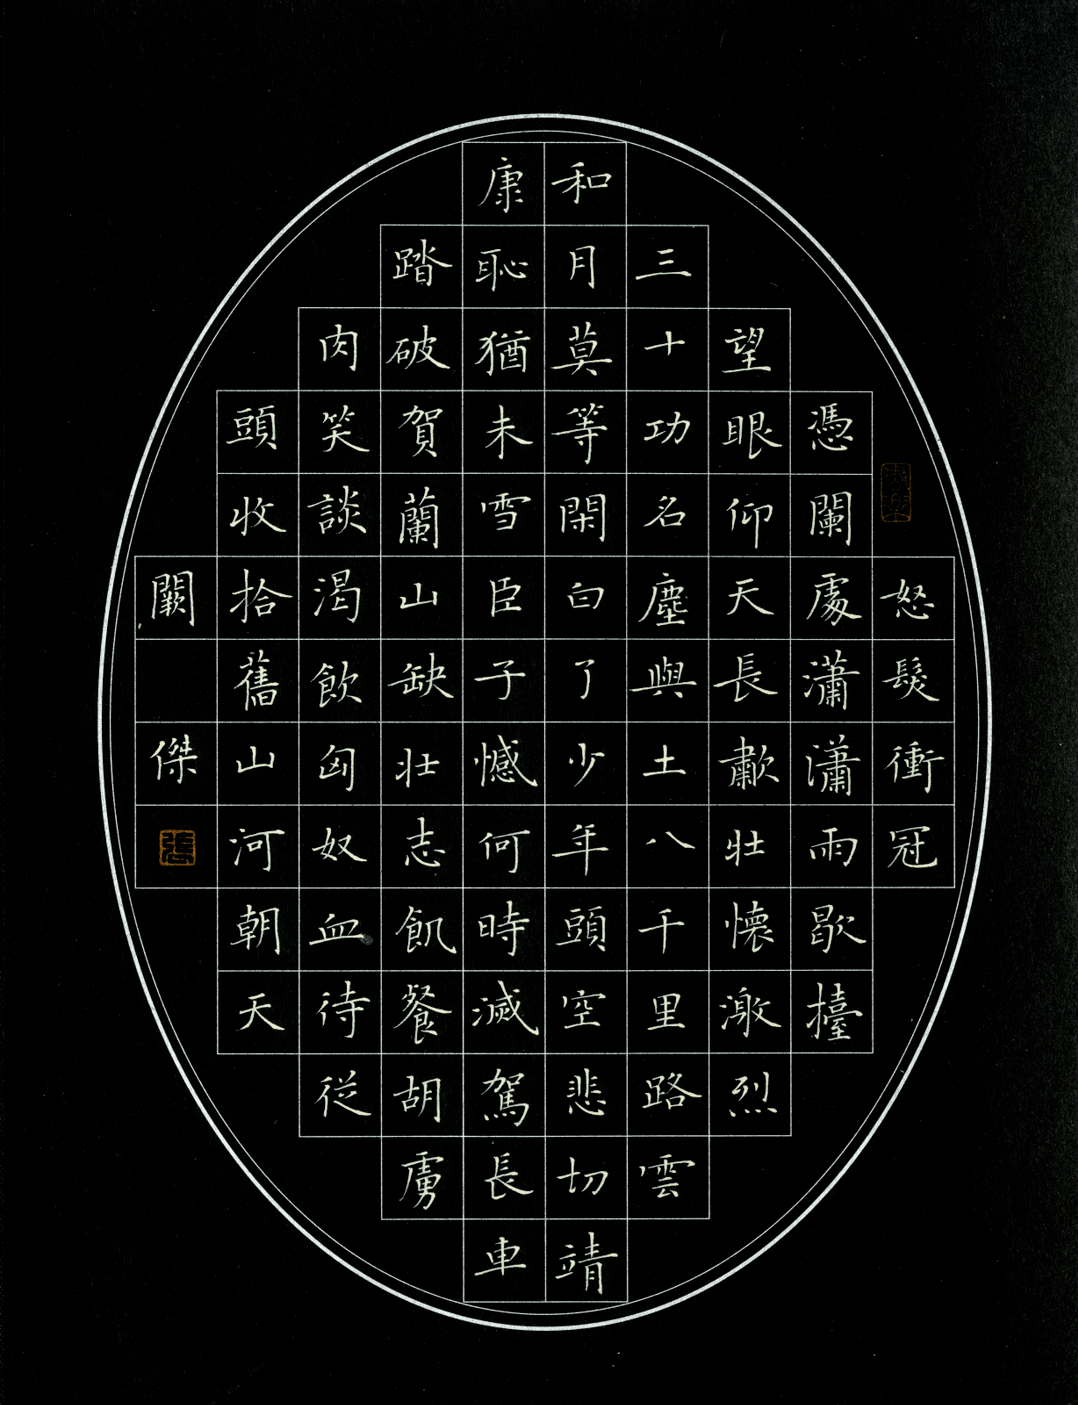 怒髮衝冠
憑闌處瀟瀟雨歇擡
望眼仰天長歗壯懷激烈
三十功名塵與土八千里路雲
和月莫等閑白了少年頭空悲切靖
康恥猶未雪臣子憾何時滅駕長車
踏破賀蘭山缺壯志飢餐胡虜
肉笑談渴飲匈奴血待從
頭收拾舊山河朝天
闕 傑